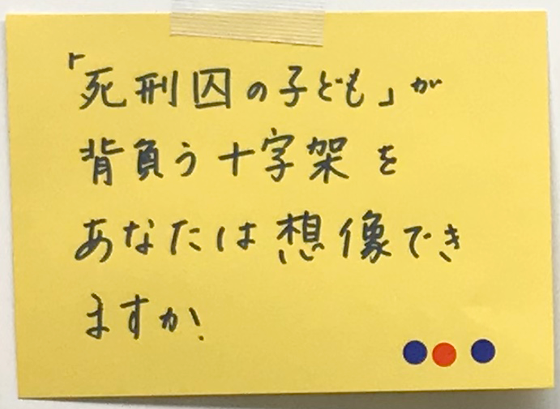 「死刑囚の子ども」が
背負う十字架を
あなたは想像でき
ますか.